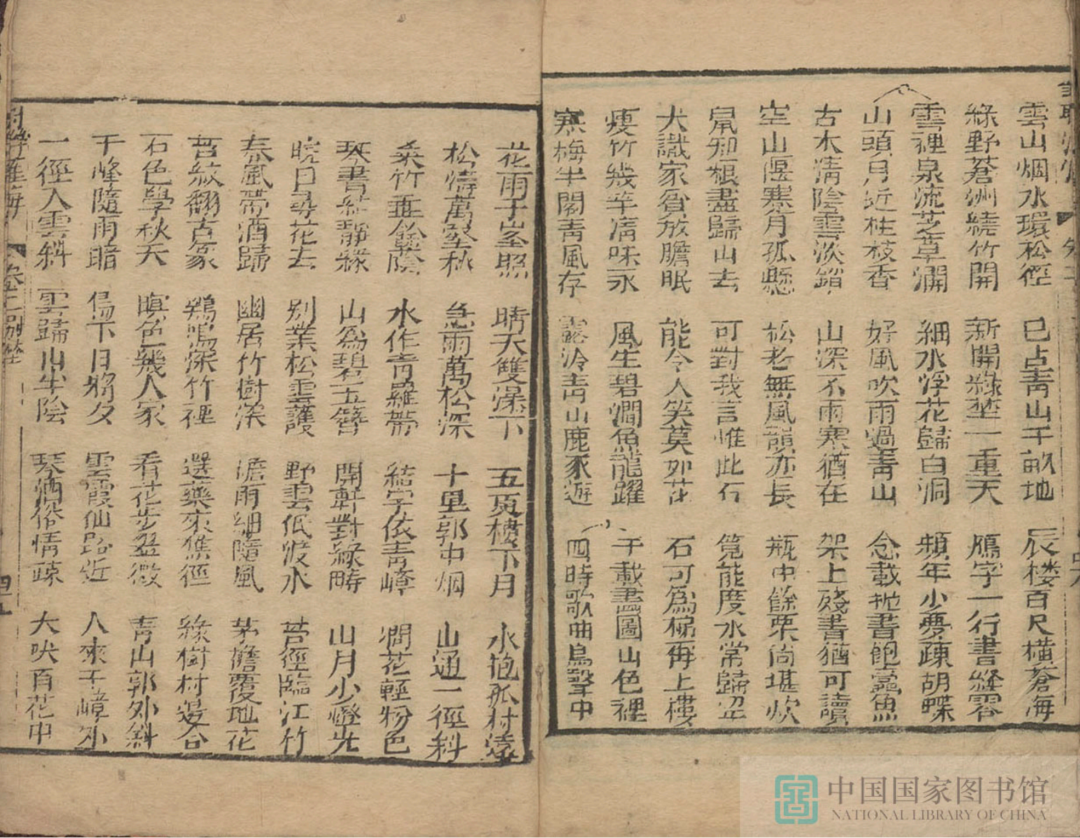 雲山烟水環松徑 已占青山千畝地 辰楼百尺横蒼海
綠野蒼洲繞竹開 新開綠埜一重天 鴈字一行書絳霄
雲裡泉流芝草澗 細水浮花歸白洞 頻年少夢疎胡蝶
山頭月近桂枝香 好風吹雨過青山 念載抛書飽蠹魚
古木清陰雲淡 山深不雨寒猶在 架上殘書猶可讀
空山偃寒月孤懸 松老無風韻亦長 瓶中餘栗尚堪炊
鼠知根盡歸山去 可對我言惟此石 筧能度水常歸
犬識家貧放膽眠 能令人笑莫如花 石可為梯再上樓
瘦竹幾竿清味永 風生碧澗魚龍躍 千載畵圖山色裡
寒梅半閣青風存 露冷青山鹿豕遊 四時歌曲鳥聲中
花雨千峯照 晴天雙瀑下 五更樓下月 水抱孤村遠
松濤萬壑秋 急雨萬松深 十里郭中烟 山通一徑斜
柔竹垂餘蔭 水作青羅帶 結宇依青嶂 澗花輕粉色
琴書結靜緣 山為碧玉簪 開軒對綠疇 山月少燈光
晩日尋花去 別業松雲護 野雲低渡水 苔徑臨江竹
春風帶酒歸 幽居竹樹深 檐雨細隨風 茅簷覆地花
苔紋翻古篆 鷄鳴深竹裡 選藥來樵徑 綠樹村邊合
石色學秋天 暝色幾人家 看花步 青山郭外斜
千峰隨雨暗 鳥下日將夕 雲霞仙路近 人來千嶂外
一徑入雲斜 雲歸山生陰 琴酒俗情疎 犬吠百花中
卷二別墅
中国国家图书馆
NATIONAL LIBRARY OF CHINA